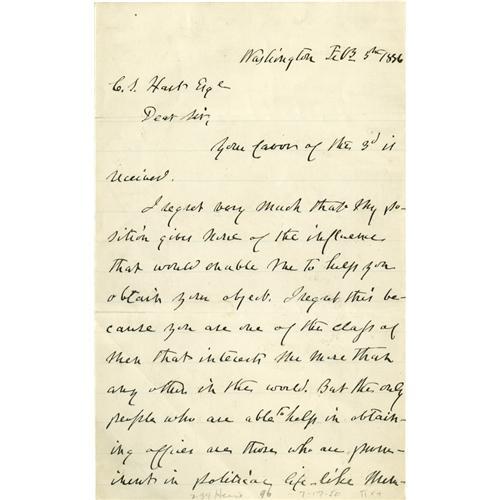 Washington Feb 5th 1886
C. S. Hart Esqr
Dear Sir,
Your favor of the 3d is
received.
I regret very much that my po-
sition gives none of the influence
that would enable me to help you
obtain your object. I regret this be-
cause you are one of the class of
men that interests me more than
any others in the world. But the only
people who are able to help in obtain-
ing offices are those who are prom-
inent in political life like Mem-